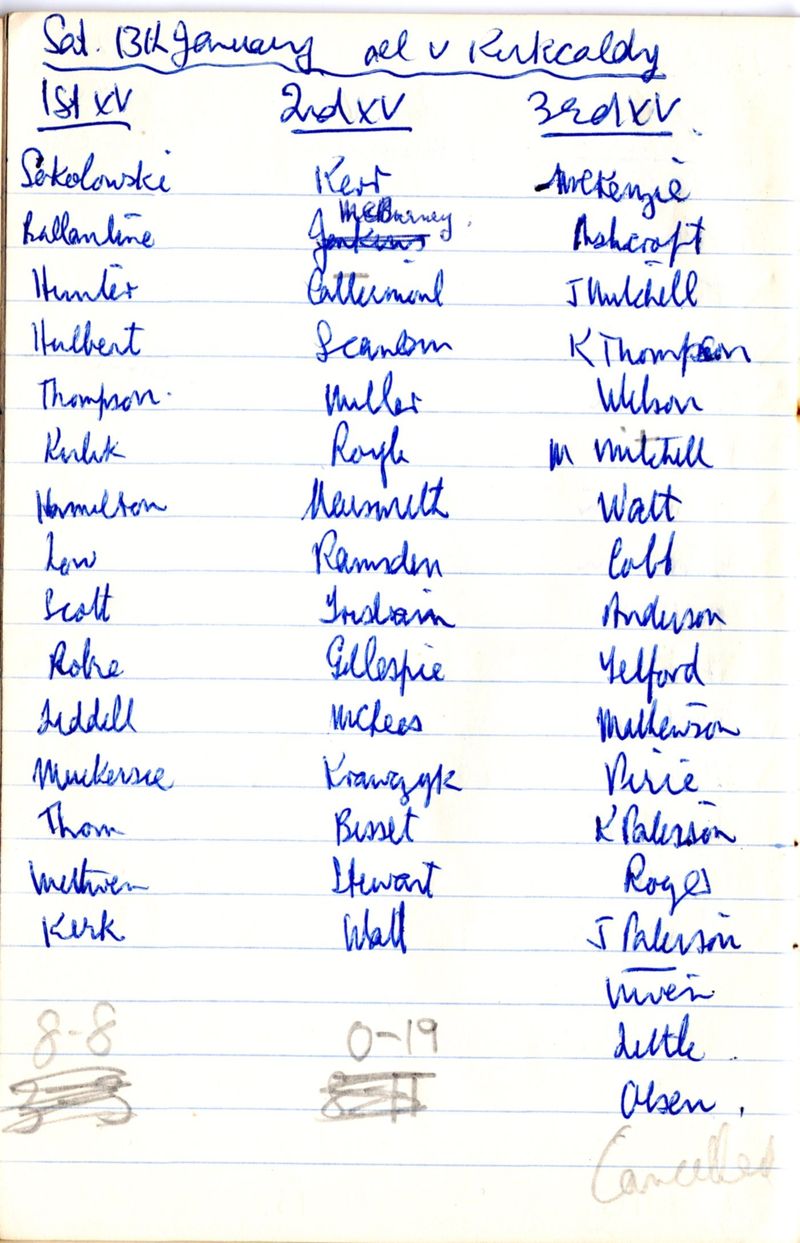 Sat. 13th January all v Kirkcaldy
1st XV 2nd XV 3rd XV
Sokolowski Kerr McKenzie
McBurney
Ballantine Jenkins Ashcroft
Hunter Cattermoul J Mitchell
Hulbert Scanlon K Thompson
Thompson Miller Wilson
Royle M Mitchell
Hamilton Naismith Watt
Low Ramsden Cobb
Scott Anderson
Robbie Gillespie Telford
Liddell McLees Mathewson
Muckersie Krawczyk Pirie
Thom Bisset K Paterson
Methven Stewart
Kirk Wall J Paterson
Niven
8-8 0-19 Little
Olsen
Cancelled